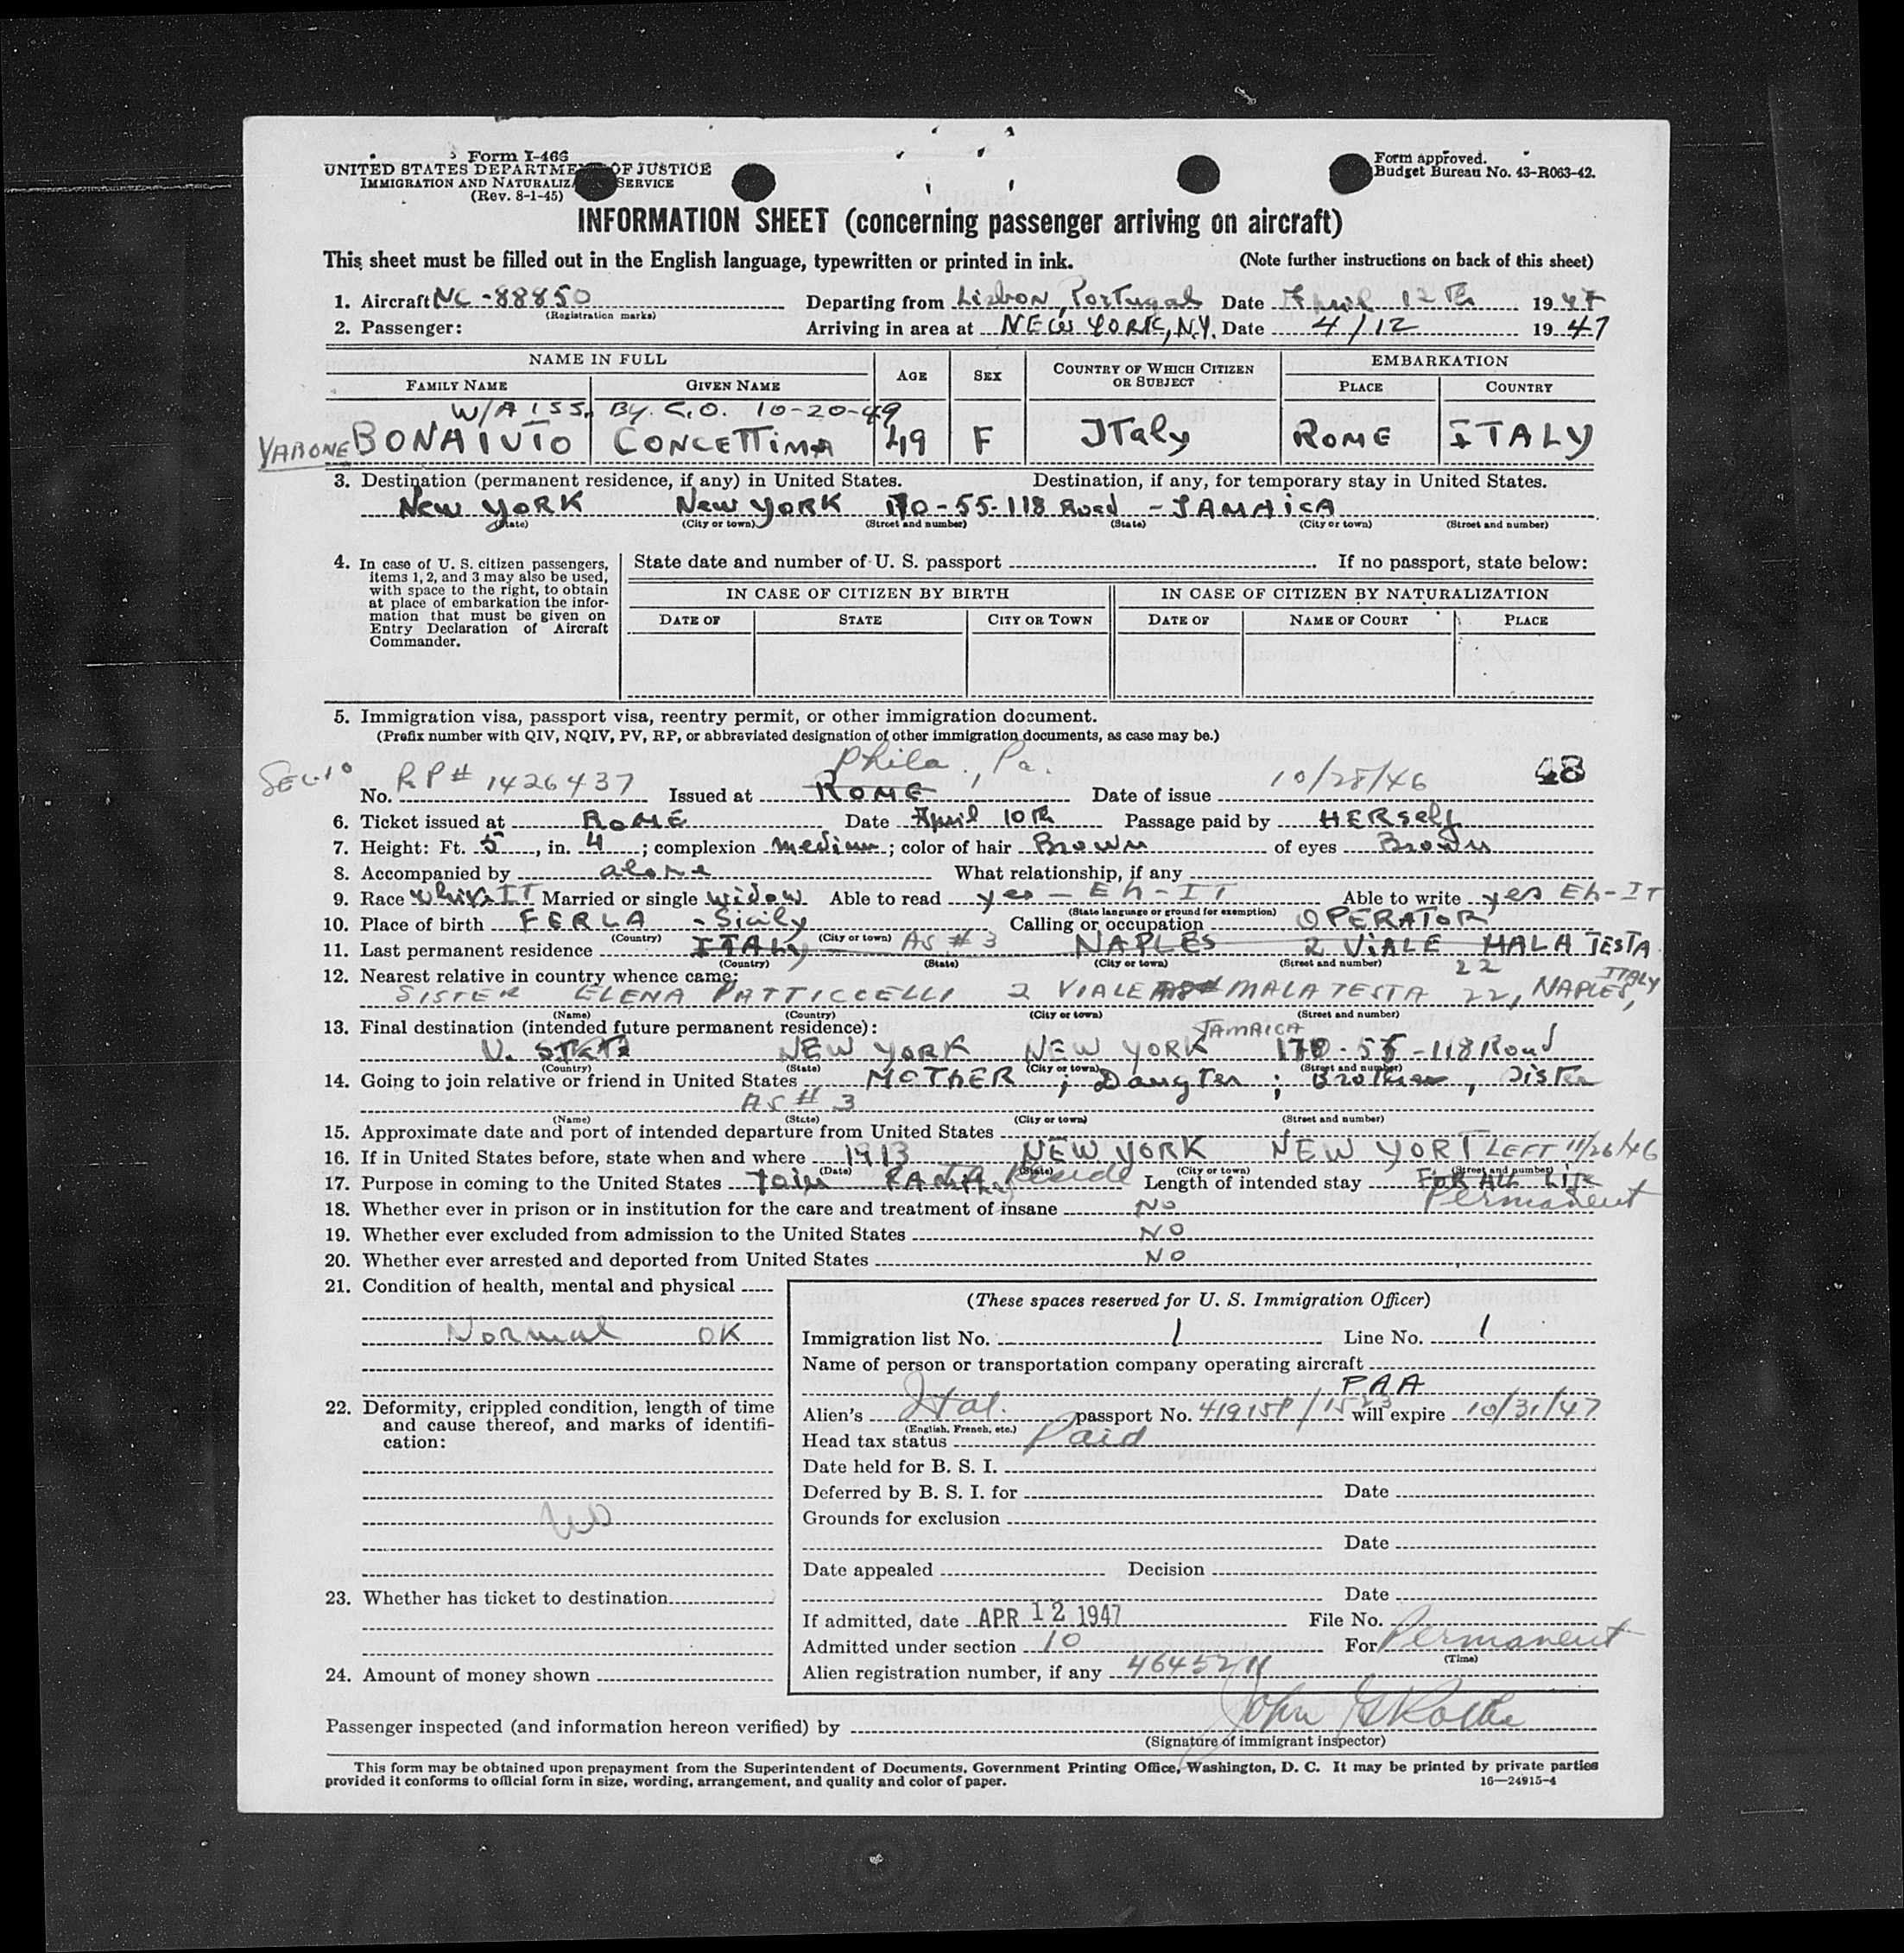 Form I-466
UNITED STATES DEPARTMENT OF JUSTICE
IMMIGRATION AND NATURALIZATION SERVICE
(Rev. 8-1-45)
Form approved.
Budget Bureau No. 43-R063-42.
INFORMATION SHEET (concerning passenger arriving on aircraft)
This sheet must be filled out in the English language, typewritten or printed in ink. (Note further instructions on back of this sheet)
1. Aircraft NC-88850 Departing from Lisbon, Portugal Date April 12th 1947
(Registration marks)
2. Passenger: Arriving in area at NEW YORK, N.Y. Date 4/12 1947
NAME IN FULL AGE SEX COUNTRY OF WHICH CITIZEN OR SUBJECT EMBARKATION
FAMILY NAME GIVEN NAME PLACE COUNTRY
W/A ISS. By. C.O. 10-20-49
VARONE BONAIUTO CONCETTINA 49 F ITaly ROME ITALY
3. Destination (permanent residence, if any) in United States. Destination, if any, for temporary stay in United States.
New York New York 170-55-118 Road - JAMAICA
(State) (City or town) (Street and number) (State) (City or town) (Street and number)
4. In case of U. S. citizen passengers, items 1, 2, and 3 may also be used, with space to the right, to obtain at place of embarkation the information that must be given on Entry Declaration of Aircraft Commander.
State date and number of U. S. passport If no passport, state below:
IN CASE OF CITIZEN BY BIRTH IN CASE OF CITIZEN BY NATURALIZATION
DATE OF STATE CITY OR TOWN DATE OF NAME OF COURT PLACE
5. Immigration visa, passport visa, reentry permit, or other immigration document.
(Prefix number with QIV, NQIV, PV, RP, or abbreviated designation of other immigration documents, as case may be.)
Phila., Pa.
Sec-10 No. RP# 1426437 Issued at ROME Date of issue 10/28/46 48
6. Ticket issued at ROME Date April 10th Passage paid by HERSelf
7. Height: Ft. 5, in. 4; complexion medium; color of hair Brown of eyes Brown
8. Accompanied by alone What relationship, if any
9. Race White IT Married or single widow Able to read yes - Eh - IT Able to write yes Eh-IT
(State language or ground for exemption)
10. Place of birth FERLA - Sicily Calling or occupation OPERATOR
(Country) (City or town)
11. Last permanent residence ITALY AS # 3 NAPLES 2 VIALE MALATESTA
(Country) (State) (City or town) (Street and number)
22
12. Nearest relative in country whence came:
SISTER ELENA PATTICCELLI 2 VIALE MALATESTA 22, NAPLES, ITALY
(Name) (Country) (City or town) (Street and number)
13. Final destination (intended future permanent residence):
JAMAICA
U. STATE NEW YORK NEW YORK 170-55-118 Road
(Country) (State) (City or town) (Street and number)
14. Going to join relative or friend in United States MOTHER; Daugter; Brother, Sister
AS # 3
(Name) (State) (City or town) (Street and number)
15. Approximate date and port of intended departure from United States
16. If in United States before, state when and where 1913 NEW YORK NEW YORT LEFT 11/26/46
(Date) (State) (City or town) (Street and number)
17. Purpose in coming to the United States Join Reside Length of intended stay FOR ALL LIFE
Permanent
18. Whether ever in prison or in institution for the care and treatment of insane NO
19. Whether ever excluded from admission to the United States NO
20. Whether ever arrested and deported from United States NO
21. Condition of health, mental and physical
Normal OK
22. Deformity, crippled condition, length of time and cause thereof, and marks of identification:
No
23. Whether has ticket to destination
24. Amount of money shown
(These spaces reserved for U. S. Immigration Officer)
Immigration list No. 1 Line No. 1
Name of person or transportation company operating aircraft
PAA
Alien's Ital. passport No. 41915P/1523 will expire 10/31/47
(English, French, etc.)
Head tax status Paid
Date held for B. S. I.
Deferred by B. S. I. for Date
Grounds for exclusion
Date
Date appealed Decision
Date
If admitted, date APR 12 1947 File No.
Admitted under section 10 For Permanent
(Time)
Alien registration number, if any
Passenger inspected (and information hereon verified) by John
(Signature of immigrant inspector)
This form may be obtained upon prepayment from the Superintendent of Documents, Government Printing Office, Washington, D. C. It may be printed by private parties
provided it conforms to official form in size, wording, arrangement, and quality and color of paper. 16—24915-4